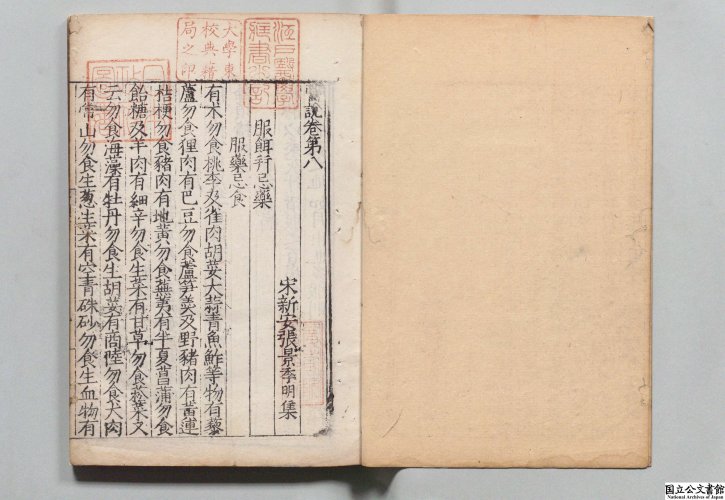 說卷第八
宋新安張景季明集
服餌并忌藥
服藥忌食
有朮勿食桃李及雀肉胡荽大蒜青魚鮓等物有藜
蘆勿食狸肉有巴豆勿食蘆笋羹及野豬肉有黃連
桔梗勿食豬肉有地黃勿食蕪荑有半夏菖蒲勿食
飴糖及羊肉有細辛勿食生菜有甘草勿食菘菜又
云勿食海藻有牡丹勿食生胡荽有商陸勿食犬肉
有常山勿食生葱生菜有空青硃砂勿食生血物有
江戶醫學
大學東
校典籍
局之印
国立公文書館
National Archives of Japan